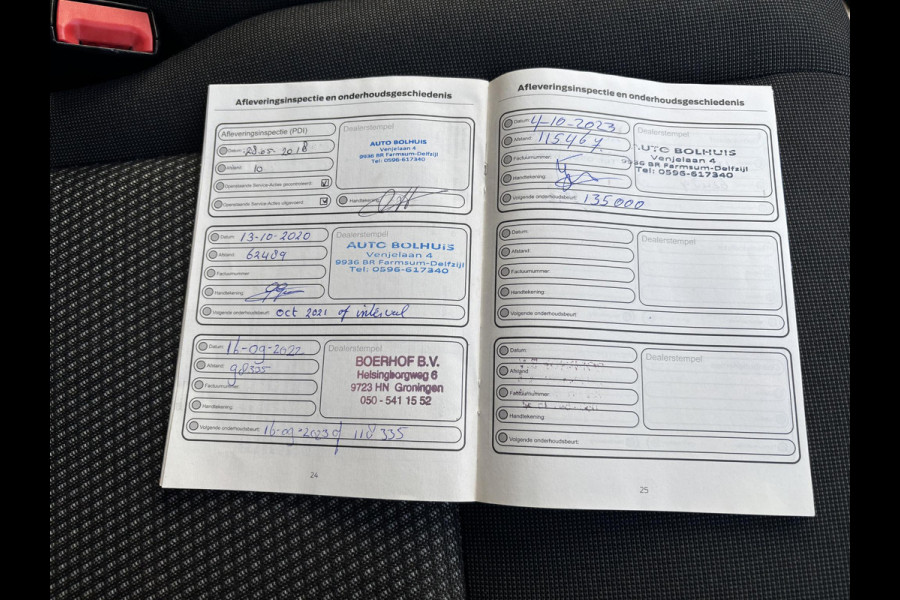 Afleveringsinspectie en onderhoudsgeschiedenis
Afleveringsinspectie (PDI)
Datum: 28-05-2018
Afstand: 10
Openstaande Service-Acties gecontroleerd
Openstaande Service-Acties uitgevoerd
Dealerstempel
AUTO BOLHUIS
Venjelaan 4
9936 BR Farmsum-Delfzijl
Tel: 0596-617340
Handtekening
Datum: 13-10-2020
Afstand: 62489
Factuurnummer:
Handtekening:
Volgende onderhoudsbeurt: oct 2021 of interval
Dealerstempel
AUTO BOLHUIS
Venjelaan 4
9936 BR Farmsum-Delfzijl
Tel: 0596-617340
Datum: 16-09-2022
Afstand: 98335
Factuurnummer:
Handtekening:
Volgende onderhoudsbeurt: 16-09-2023 of 118335
Dealerstempel
BOERHOF B.V.
Helsingborgweg 6
9723 HN Groningen
050 - 541 15 52
24
Afleveringsinspectie en onderhoudsgeschiedenis
Datum: 4-10-2023
Afstand: 115467
Factuurnummer:
Handtekening:
Volgende onderhoudsbeurt: 135000
Dealerstempel
AUTO BOLHUIS
Venjelaan 4
9936 BR Farmsum-Delfzijl
Tel: 0596-617340
Datum:
Afstand:
Factuurnummer:
Handtekening:
Volgende onderhoudsbeurt:
Dealerstempel
Datum:
Afstand:
Factuurnummer:
Handtekening:
Volgende onderhoudsbeurt:
Dealerstempel
25